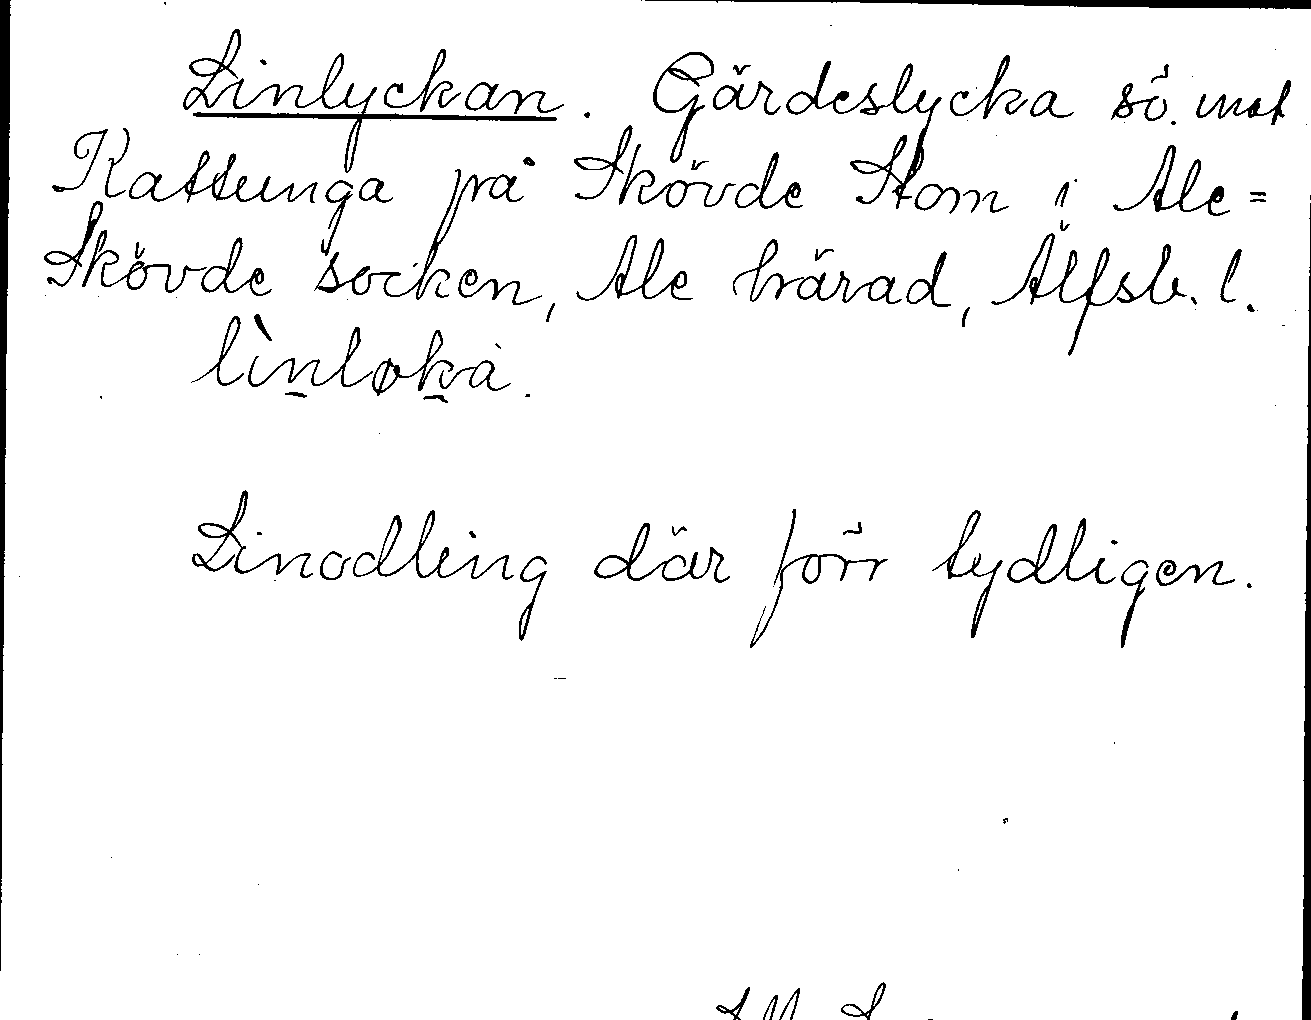 Linlyckan. Gärdeslycka sö. mot
Kattunga på Skövde Stom i Ale=
Skövde socken, Ale härad, Älfsb. l.
lìnløka.
Linodling där förr tydligen.